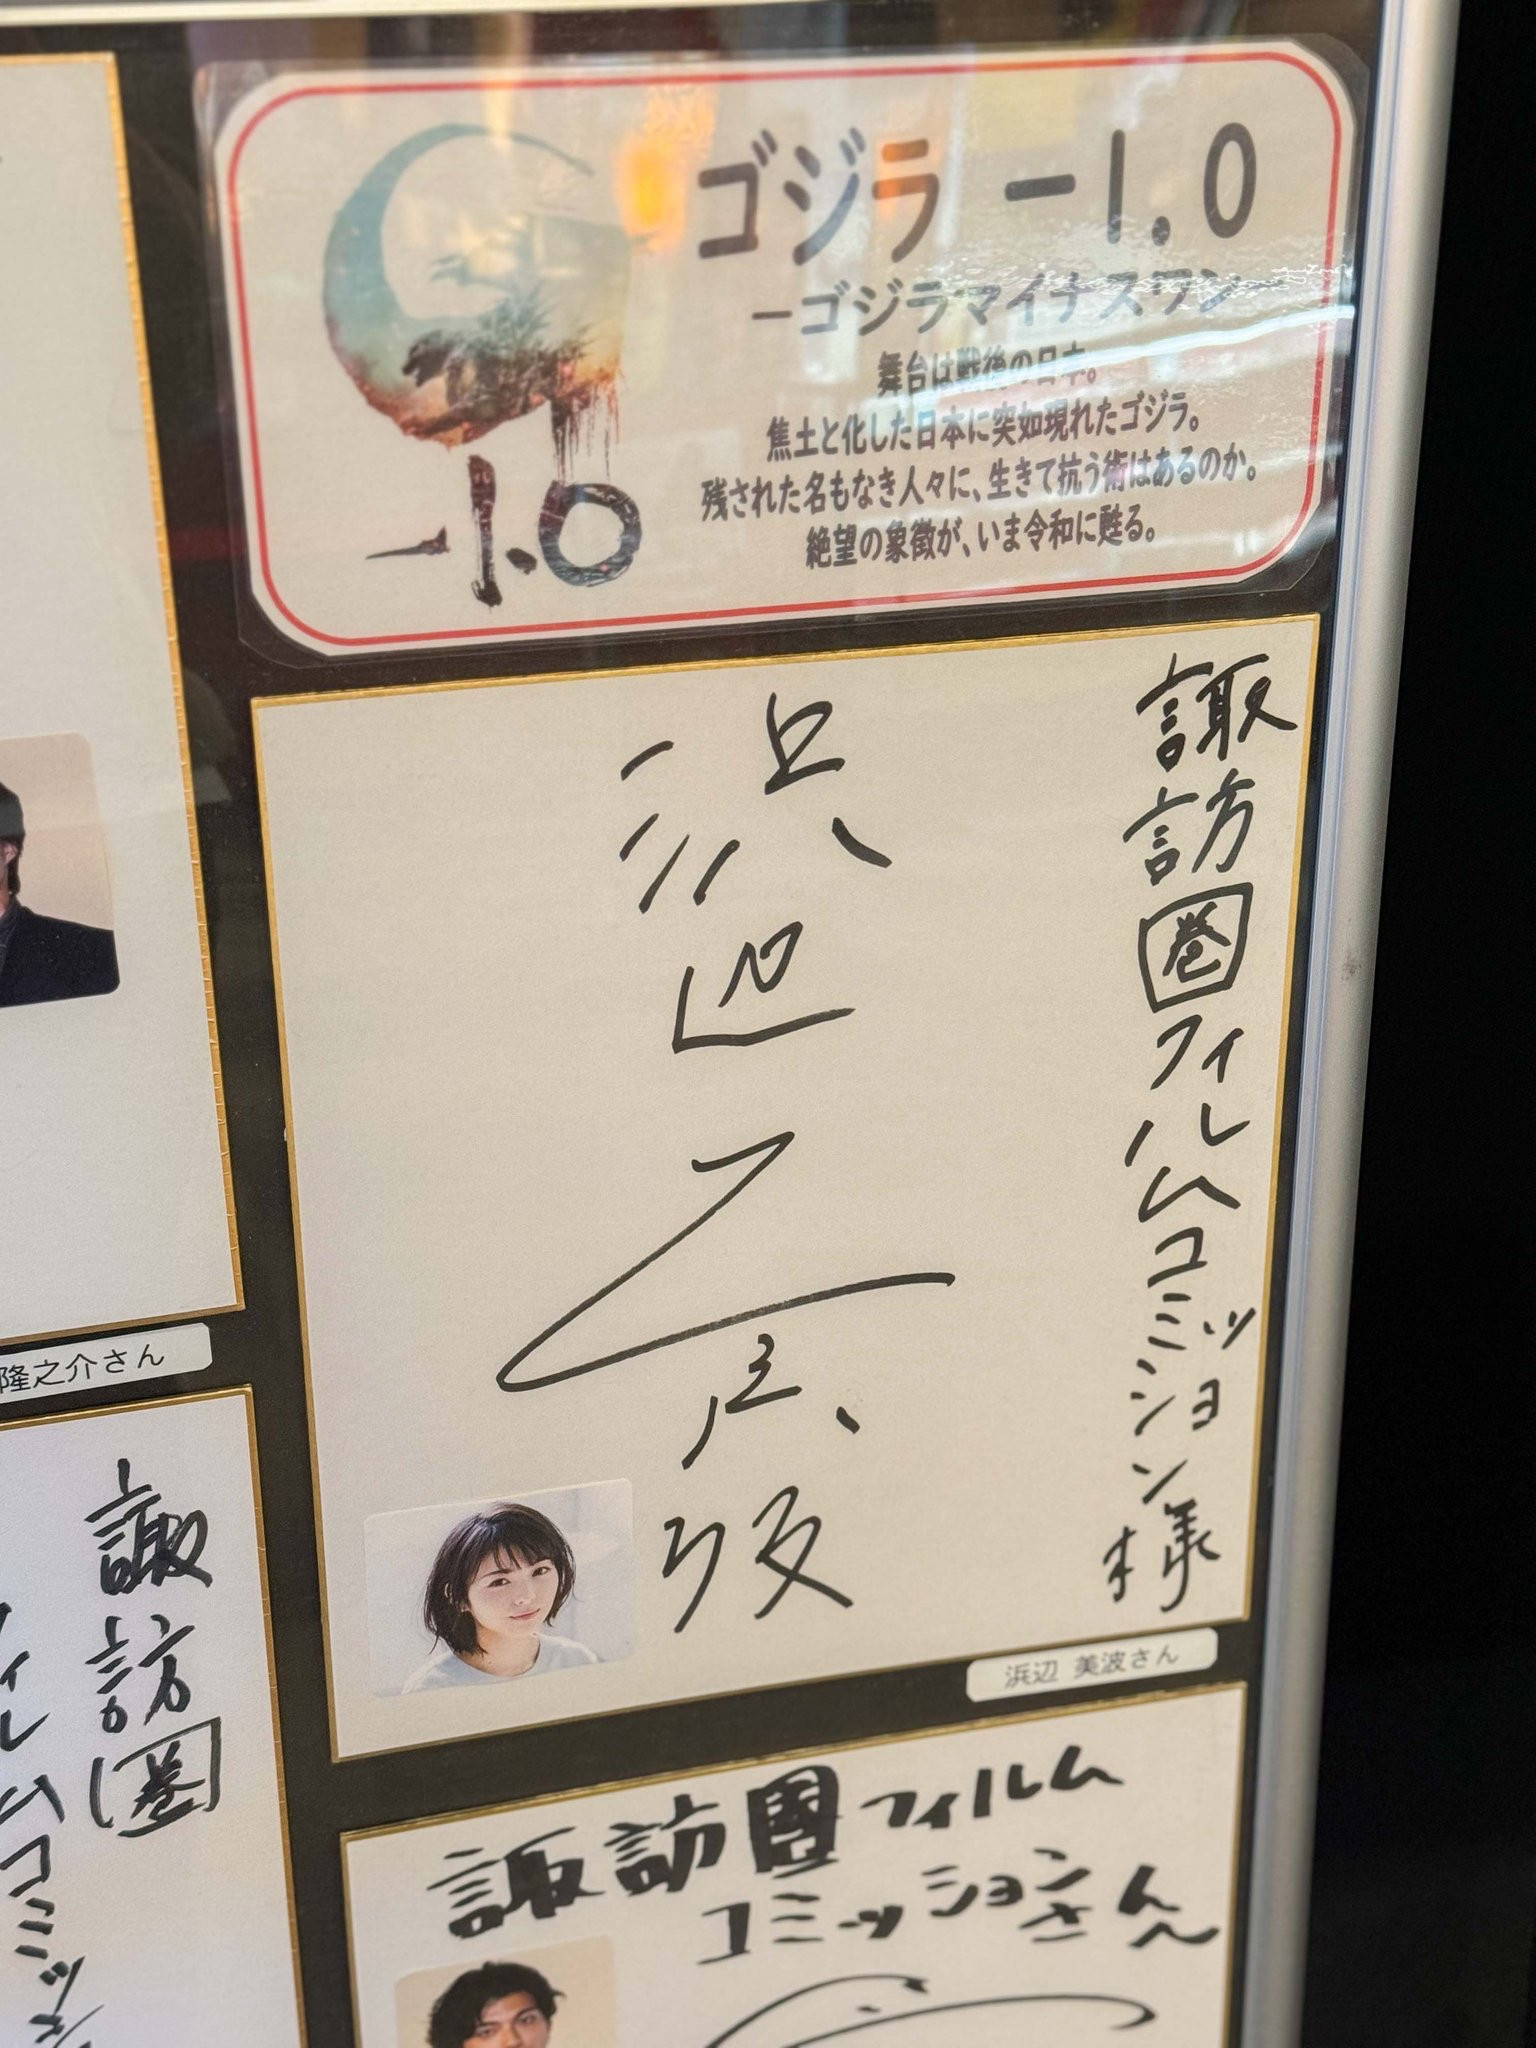 ゴジラ －1.0
－ゴジラマイナスワン
舞台は戦後の日本。
焦土と化した日本に突如現れたゴジラ。
残された名もなき人々に、生きて抗う術はあるのか。
絶望の象徴が、いま令和に甦る。
-1.0
諏訪圏フィルムコミッション様
浜辺美波
浜辺 美波さん
隆之介さん
諏訪圏
フィルムコミッ
諏訪圏フィルム
コミッションさん